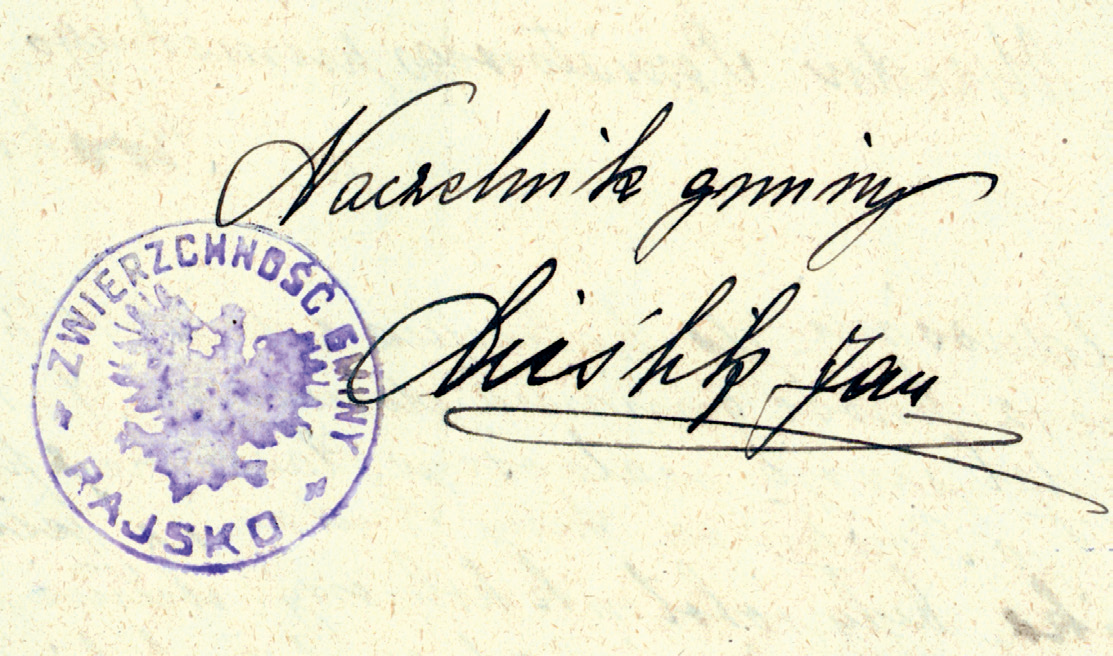 Naczelnik gminy
Jan
ZWIERZCHNOŚĆ GMINY
RAJSKO